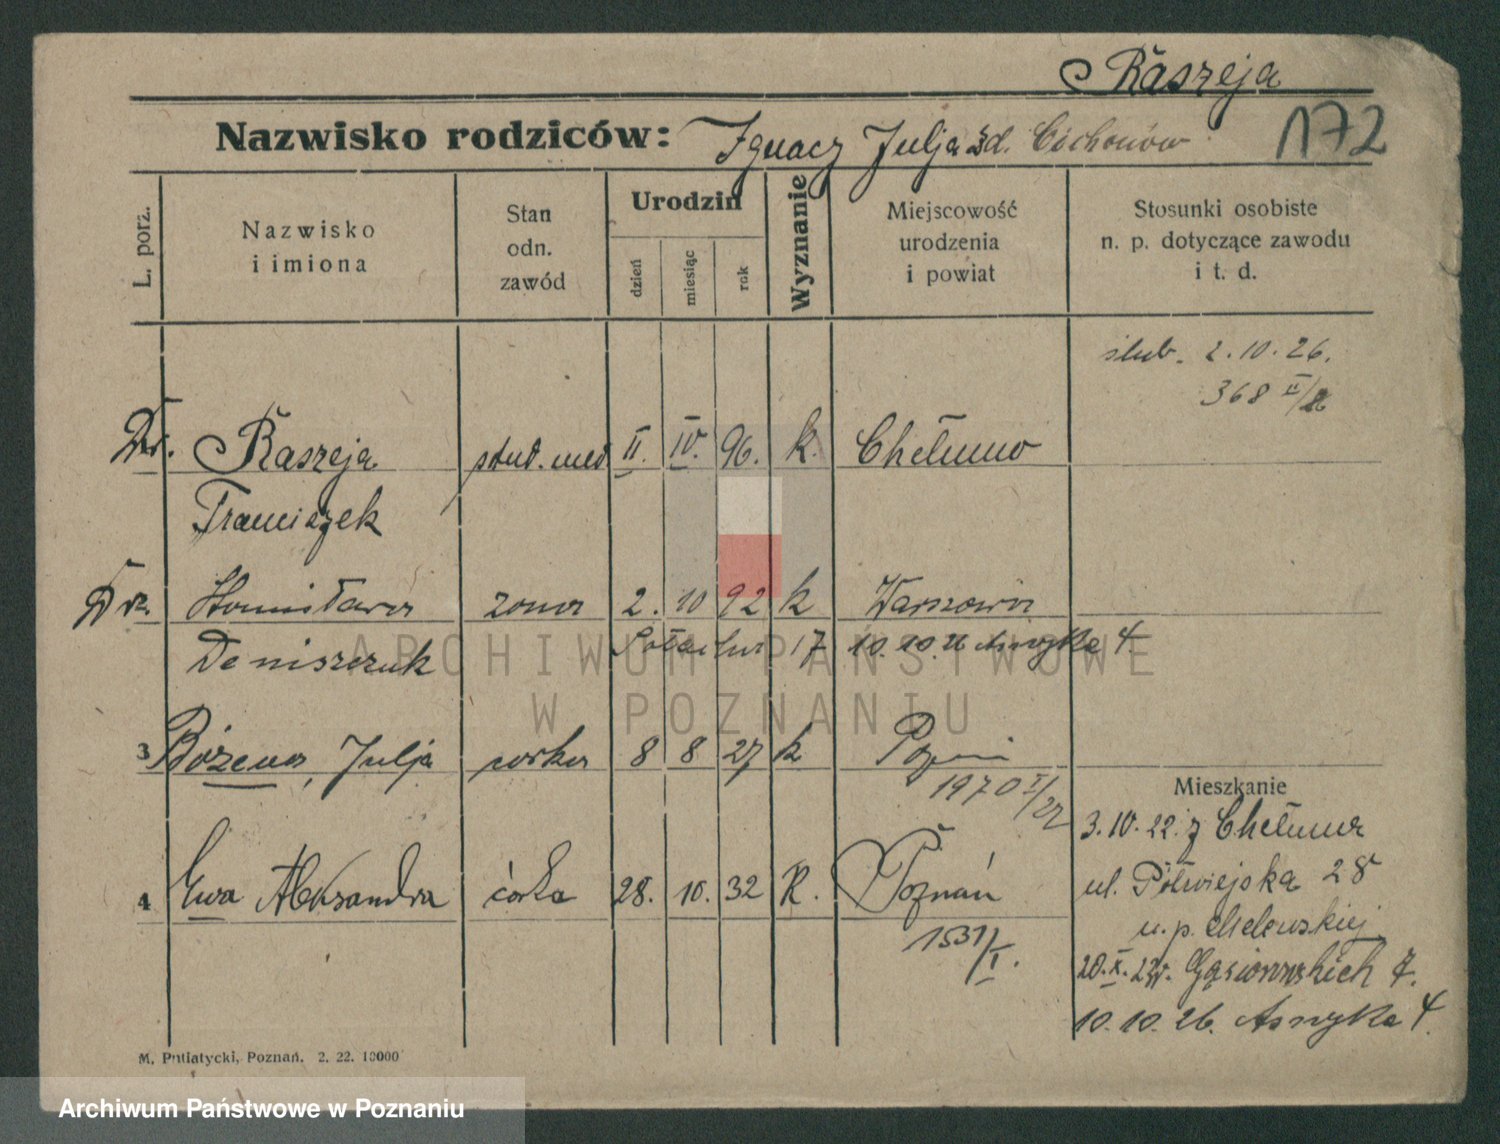 Raszeja
Nazwisko rodziców: Ignacy Julja zd. Cichoniów
172
L. porz.
Nazwisko
i imiona
Stan
odn.
zawód
Urodzin
dzień
miesiąc
rok
Wyznanie
Miejscowość
urodzenia
i powiat
Stosunki osobiste
n. p. dotyczące zawodu
i t. d.
ślub. 2.10.26.
368 II/26
Dr. Raszeja stud. med II. IV. 96. k. Chełmno
Franciszek
Dr. Stanisława żona 2. 10 92 k Warszawa
Deniszczuk 17 10.10.26 Asnyka 4.
3 Bożena, Julja córka 8 8 27 k Pozn
1970 I/27
4 Ewa Aleksandra córka 28. 10. 32 R. Poznań
1531/I.
Mieszkanie
3.10.22. z Chełmna
ul. Półwiejska 28
u. p.
20.X.22r. Gąsiorowskich 7.
10.10.26. Asnyka 4.
M. Putiatycki, Poznań. 2. 22. 10000
ARCHIWUM PAŃSTWOWE
W POZNANIU
Archiwum Państwowe w Poznaniu